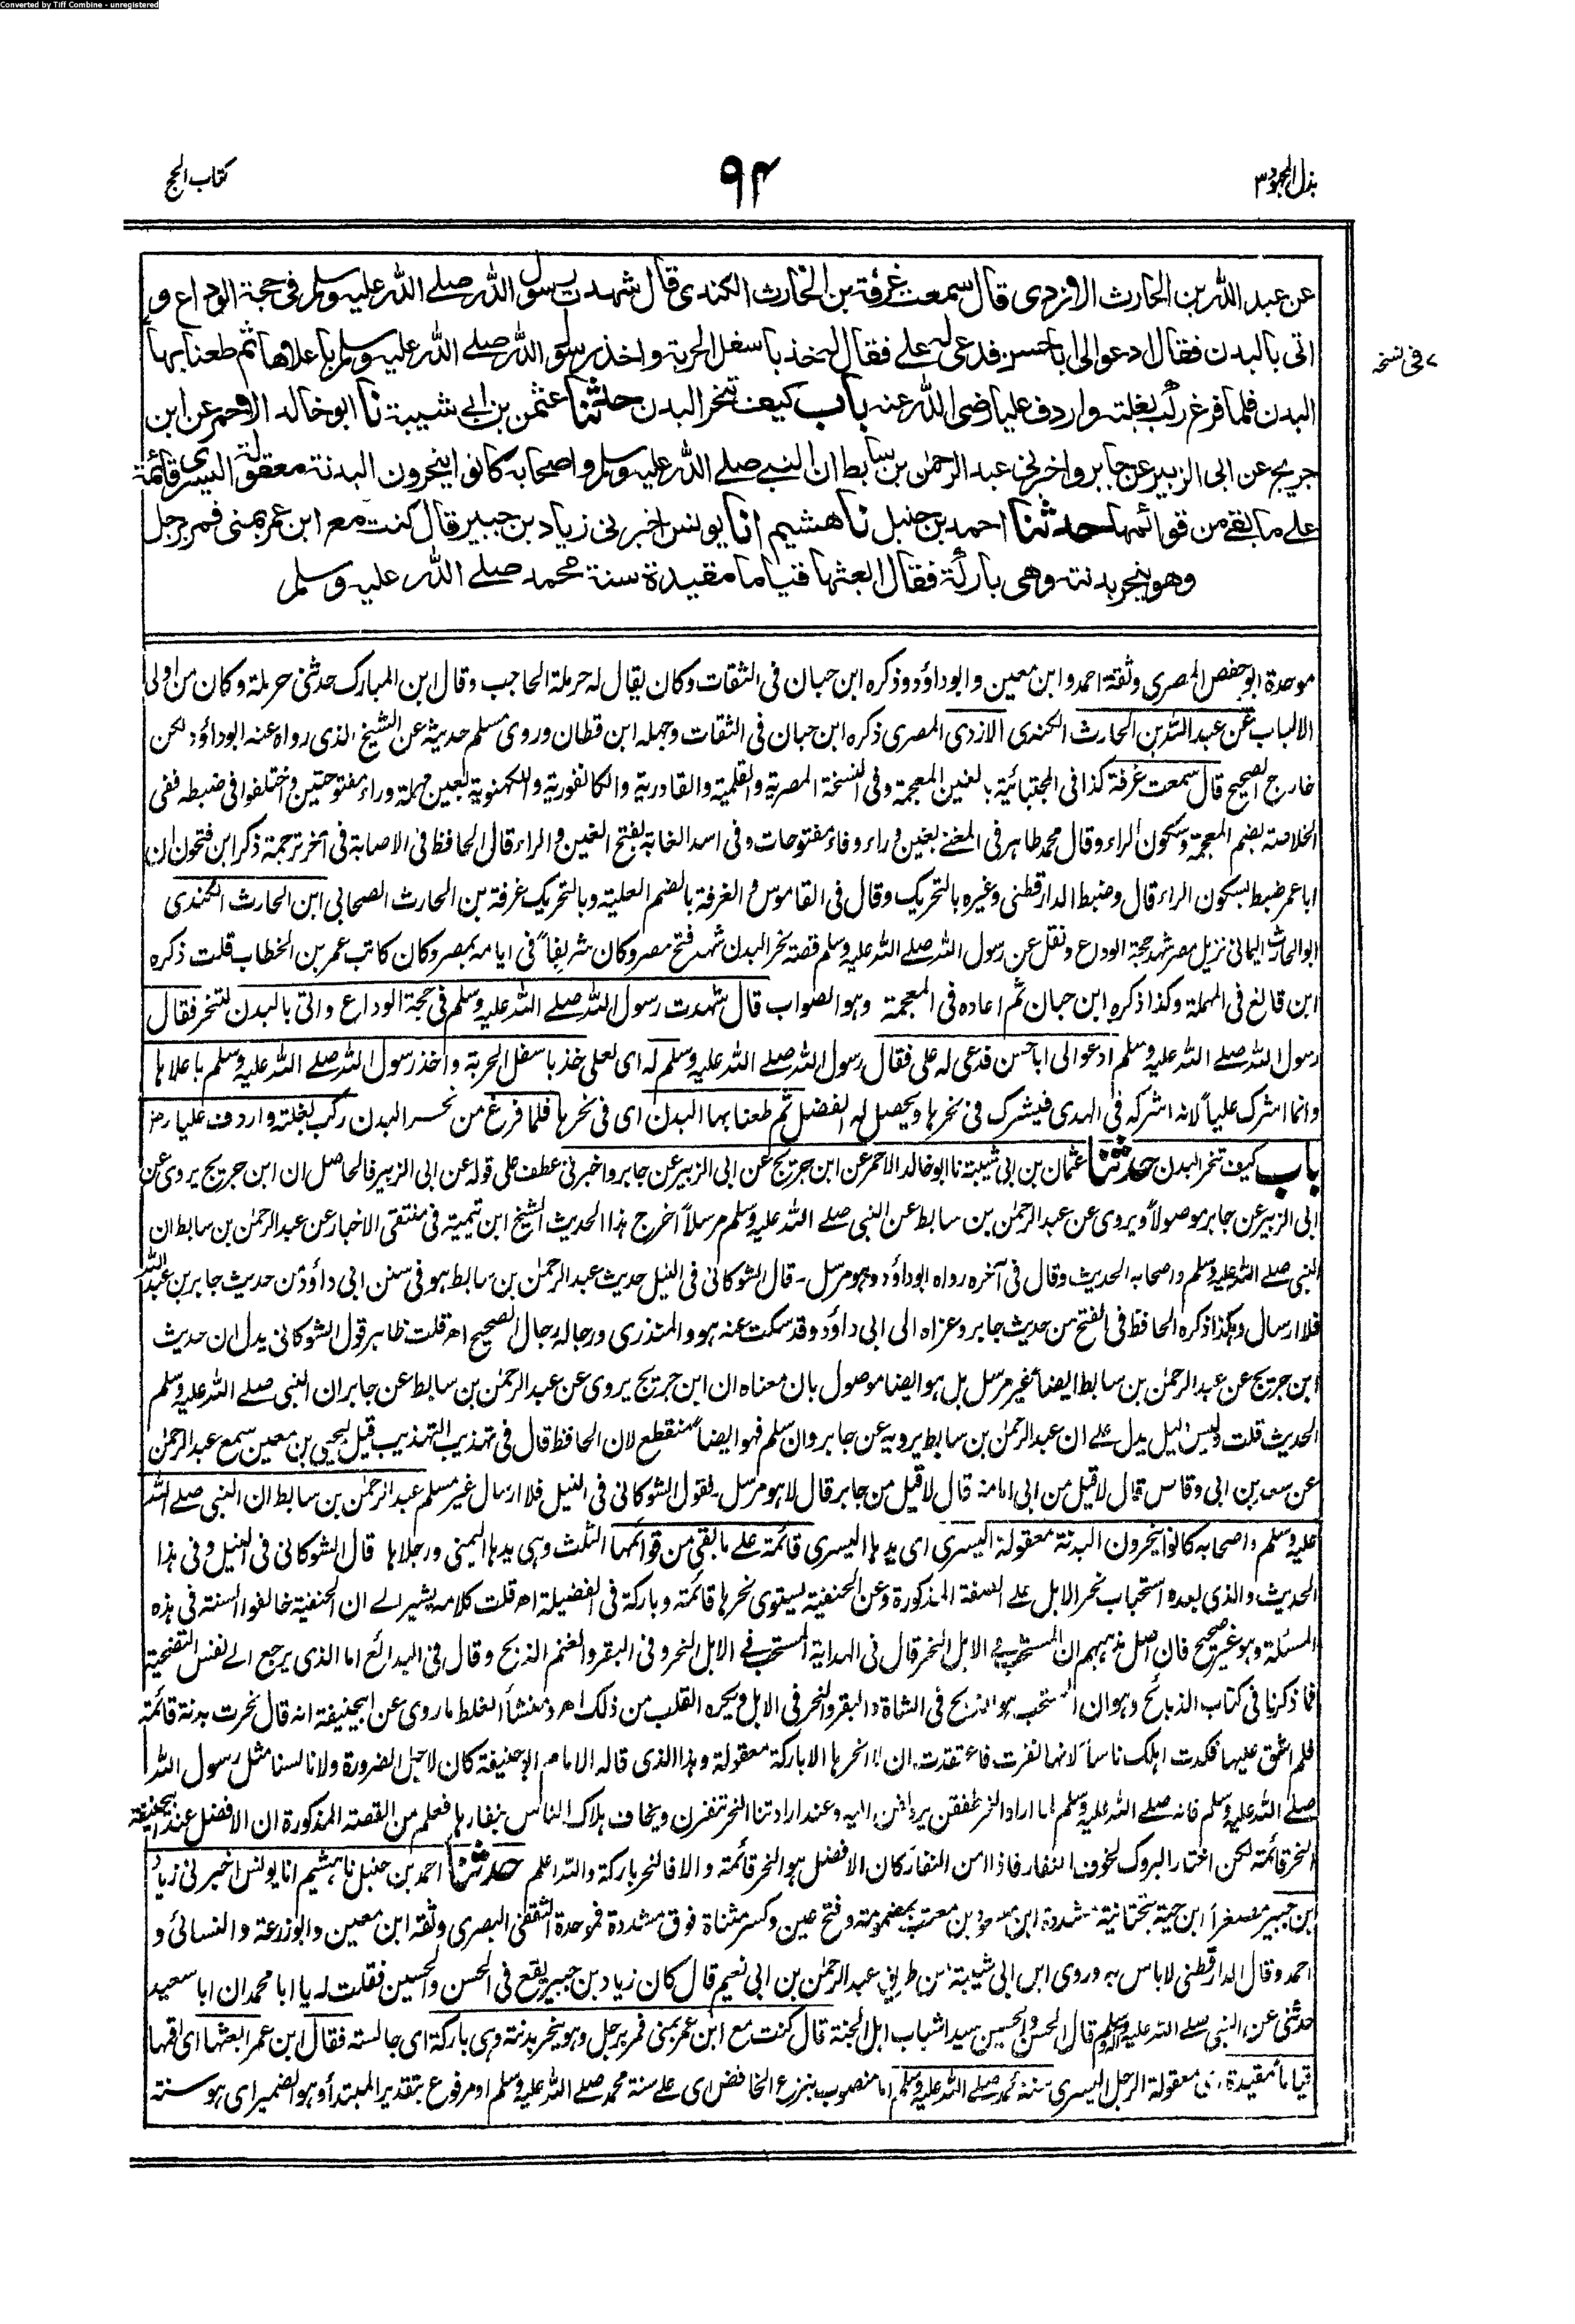 Converted by Tiff Combine - unregistered
بذل المجهود ٣
٩٤
كتاب الحج
عن عبد الله بن الحارث الازدى قال سمعت غرفة بن الحارث الكندى قال شهدت رسول الله صلے الله عليه وسلم فى حجة الوداع و
اتى بالبدن فقال ادعوا لى ابا حسن فدعى له على فقال له خذ باسفل الحربة واخذ رسول الله صلے الله عليه وسلم باعلاها ثم طعنا بها
فى نسخة
البدن فلما فرغ ركب بغلته واردف عليا رضى الله عنه باب كيف تنحر البدن حدثنا عثمن بن ابى شيبة نا ابو خالد الاحمر عن ابن
جريج عن ابى الزبير عن جابر واخبرنى عبد الرحمٰن بن سابط ان النبى صلے الله عليه وسلم واصحابه كانوا ينحرون البدنة معقولة اليسرى قائمة
علے ما بقے من قوائمها حدثنا احمد بن حنبل نا هشيم انا يونس اخبرنى زياد بن جبير قال كنت مع ابن عمر بمنى فمر برجل
وهو ينحر بدنته وهى باركة فقال ابعثها قياما مقيدة سنة محمد صلے الله عليه وسلم
موحدة ابو حفص المصرى وثقه احمد وابن معين وابو داؤد وذكره ابن حبان فى الثقات وكان يقال له حرملة الحاجب وقال ابن المبارك حدثنى حرملة وكان من اولى
الالباب عن عبد الله بن الحارث الكندى الازدى المصرى ذكره ابن حبان فى الثقات وجهله ابن قطان وروى مسلم حديثه عن الشيخ الذى رواه عنه ابو داؤد لكن
خارج الصحيح قال سمعت غرفة كذا فى المجتبائية بالغين المعجمة وفى النسخة المصرية والقلمية والقادرية والكانفورية واللكهنوية بعين مهملة وراء مفتوحتين واختلفوا فى ضبطه ففى
الخلاصة بضم المعجمة وسكون الراء وقال محمد طاهر فى المغنے بغين وراء وفاء مفتوحات وفى اسد الغابة بفتح الغين والراء قال الحافظ فى الاصابة فى آخر ترجمة ذكر ابن فتحون ان
ابا عمر ضبط بسكون الراء قال وضبط الدارقطنى وغيره بالتحريك وقال فى القاموس والغرفة بالضم العلية وبالتحريك غرفة بن الحارث الصحابى ابن الحارث الكندى
ابو الحارث اليمانى نزيل مصر شهد حجة الوداع ونقل عن رسول الله صلے الله عليه وسلم قصة نحر البدن شهد فتح مصر وكان شريفاً فى ايامه بمصر وكان كاتب عمر بن الخطاب قلت ذكره
ابن قانع فى المهملة وكذا ذكره ابن حبان ثم اعاده فى المعجمة وهو الصواب قال شهدت رسول الله صلے الله عليه وسلم فى حجة الوداع واتى بالبدن لتنحر فقال
رسول الله صلے الله عليه وسلم ادعوا لى ابا حسن فدعى له على فقال رسول الله صلے الله عليه وسلم له اى لعلى خذ باسفل الحربة واخذ رسول الله صلے الله عليه وسلم باعلاها
وانما اشرك علياً لانه اشركه فى الهدى فيشرك فى نحرها ويحصل له الفضل ثم طعنا بها البدن اى فى نحرها فلما فرغ من نحر البدن ركب بغلته واردف عليا رضـ
باب كيف تنحر البدن حدثنا عثمان بن ابى شيبة نا ابو خالد الاحمر عن ابن جريج عن ابى الزبير عن جابر واخبرنى عطف على قوله عن ابى الزبير فالحاصل ان ابن جريج يروى عن
ابى الزبير عن جابر موصولاً ويروى عن عبد الرحمٰن بن سابط عن النبى صلے الله عليه وسلم مرسلاً اخرج هذا الحديث الشيخ ابن تيمية فى منتقى الاخبار عن عبد الرحمٰن بن سابط ان
النبى صلے الله عليه وسلم واصحابه الحديث وقال فى آخره رواه ابو داؤد وهو مرسل - قال الشوكانى فى النيل حديث عبد الرحمٰن بن سابط هو فى سنن ابى داؤد من حديث جابر بن عبد الله
فلا ارسال وهكذا ذكره الحافظ فى الفتح من حديث جابر وعزاه الى ابى داؤد وقد سكت عنه هو والمنذرى ورجاله رجال الصحيح اھ قلت ظاهر قول الشوكانى يدل ان حديث
ابن جريج عن عبد الرحمٰن بن سابط ايضاً غير مرسل بل هو ايضا موصول بان معناه ان ابن جريج يروى عن عبد الرحمٰن بن سابط عن جابر ان النبى صلے الله عليه وسلم
الحديث قلت وليس دليل يدل علے ان عبد الرحمٰن بن سابط يرويه عن جابر وان سلم فهو ايضاً منقطع لان الحافظ قال فى تهذيب التهذيب قيل ليحيى بن معين سمع عبد الرحمٰن
عن سعد بن ابى وقاص قال لا قيل من ابى امامة قال لا قيل من جابر قال لا هو مرسل - فقول الشوكانى فى النيل فلا ارسال غير مسلم عبد الرحمٰن بن سابط ان النبى صلے الله
عليه وسلم واصحابه كانوا ينحرون البدنة معقولة اليسرى اى يدها اليسرى قائمة علے ما بقى من قوائمها الثلث وهى يدها اليمنى ورجلاها قال الشوكانى فى النيل وفى هذا
الحديث والذى بعده استحباب نحر الابل علے الصفة المذكورة وعن الحنفية يستوى نحرها قائمة وباركة فى الفضيلة اھ قلت كلامه يشير الے ان الحنفية خالفوا السنة فى هذه
المسئلة وهو غير صحيح فان اصل مذهبهم ان المستحب فے الابل النحر قال فى الهداية المستحب فے الابل النحر وفى البقر والغنم الذبح وقال فى البدائع اما الذى يرجع الے نفس التضحية
فما ذكرنا فى كتاب الذبائح وهو ان المستحب هو الذبح فى الشاة والبقر والنحر فى الابل ويكره القلب من ذلك اھ ومنشأ الغلط ما روى عن ابيحنيفة انه قال نحرت بدنة قائمة
فلم اشق عليها فكدت اهلك ناساً لانها نفرت فاعتقدت ان لا انحرها الا باركة معقولة وهذا الذى قاله الامام ابو حنيفة كان لاجل الضرورة ولانا لسنا مثل رسول الله
صلے الله عليه وسلم فانه صلے الله عليه وسلم لما اراد النحر طفقن يزدلفن اليه وعند ارادتنا النحر تنفرن ويخاف هلاك الناس بنفارها فعلم من القصة المذكورة ان الافضل عند ابيحنيفة
النحر قائمة لكن اختار البروك لخوف النفار فاذا امن النفار كان الافضل هو النحر قائمة والا فالنحر باركة والله اعلم حدثنا احمد بن حنبل نا هشيم انا يونس اخبرنى زياد
ابن جبير مصغراً ابن حية بتحتانية مشددة ابن مسعود بن معتب بمضمومة وفتح عين وكسر مثناة فوق مشددة فموحدة الثقفى البصرى وثقه ابن معين وابو زرعة والنسائى و
احمد وقال الدارقطنى لا باس به وروى ابن ابى شيبة من طريق عبد الرحمٰن بن ابى نعيم قال كان زياد بن جبير يقع فى الحسن والحسين فقلت له يا ابا محمد ان ابا سعيد
حدثنى عن النبى صلے الله عليه وآله وسلم قال الحسن والحسين سيدا شباب اهل الجنة قال كنت مع ابن عمر بمنى فمر برجل وهو ينحر بدنته وهى باركة اى جالسة فقال ابن عمر ابعثها اى اقمها
قياماً مقيدة اى معقولة الرجل اليسرى سنة محمد صلے الله عليه وسلم اما منصوب بنزع الخافض اى علے سنة محمد صلے الله عليه وسلم او مرفوع بتقدير المبتدأ وهو الضمير اى هو سنة